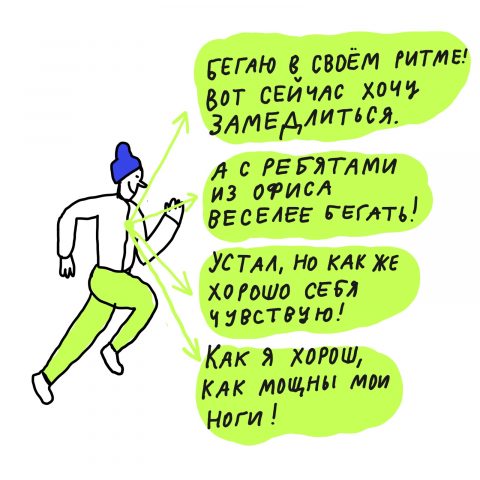 БЕГАЮ В СВОЁМ РИТМЕ!
ВОТ СЕЙЧАС ХОЧУ
ЗАМЕДЛИТЬСЯ.
А С РЕБЯТАМИ
ИЗ ОФИСА
ВЕСЕЛЕЕ БЕГАТЬ!
УСТАЛ, НО КАК ЖЕ
ХОРОШО СЕБЯ
ЧУВСТВУЮ!
КАК Я ХОРОШ,
КАК МОЩНЫ МОИ
НОГИ!